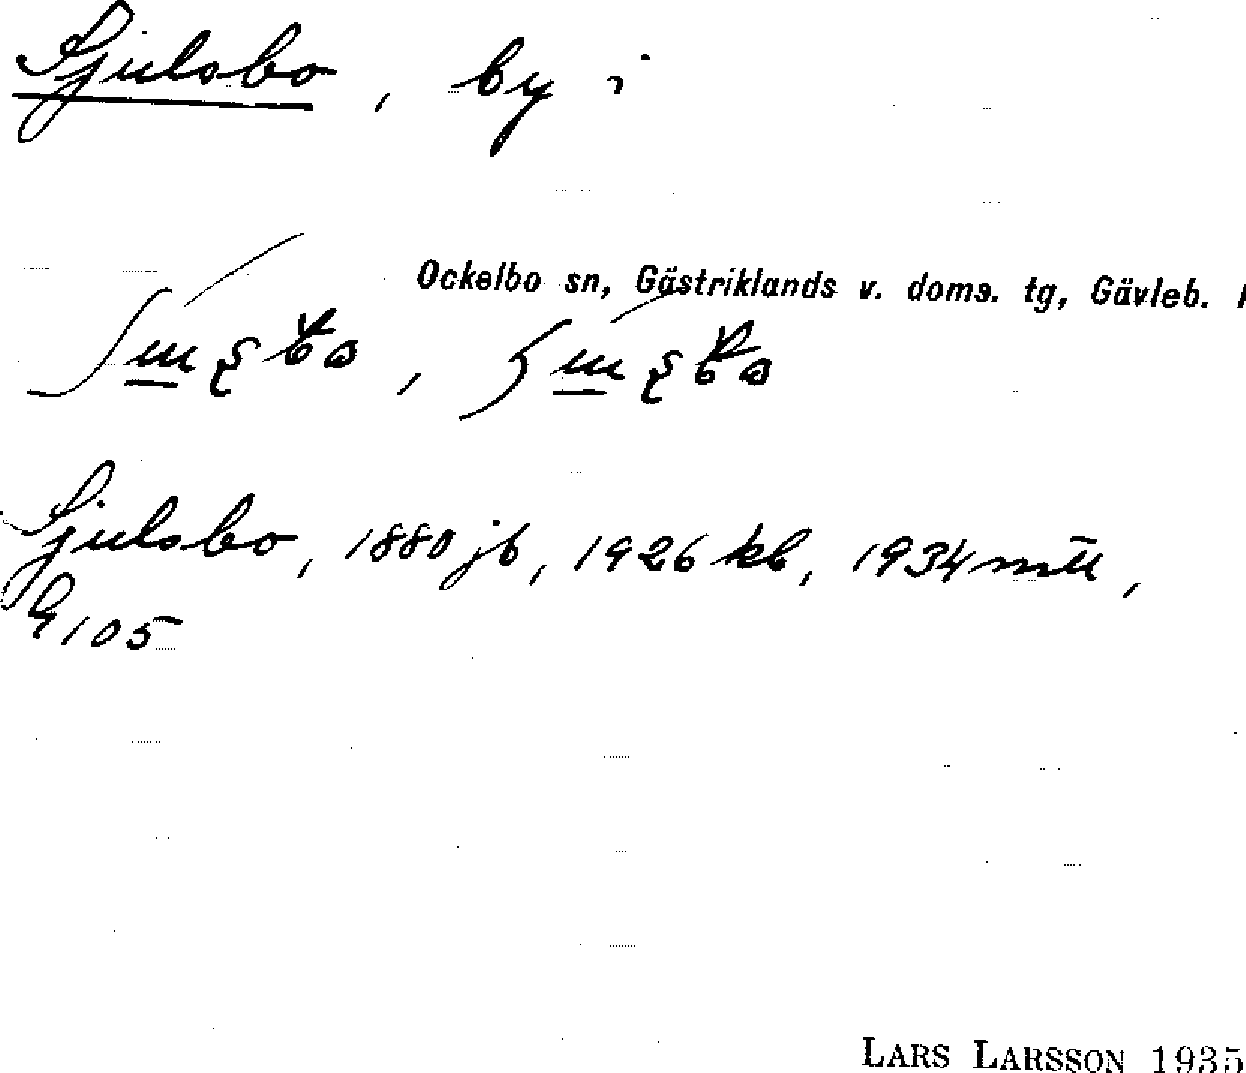 Sjulsbo, by i
Ockelbo sn, Gästriklands v. doms. tg, Gävleb. l
Sjulsbo, 1880 jb, 1926 kb, 1934 mtl,
G 105
LARS LARSSON 1935